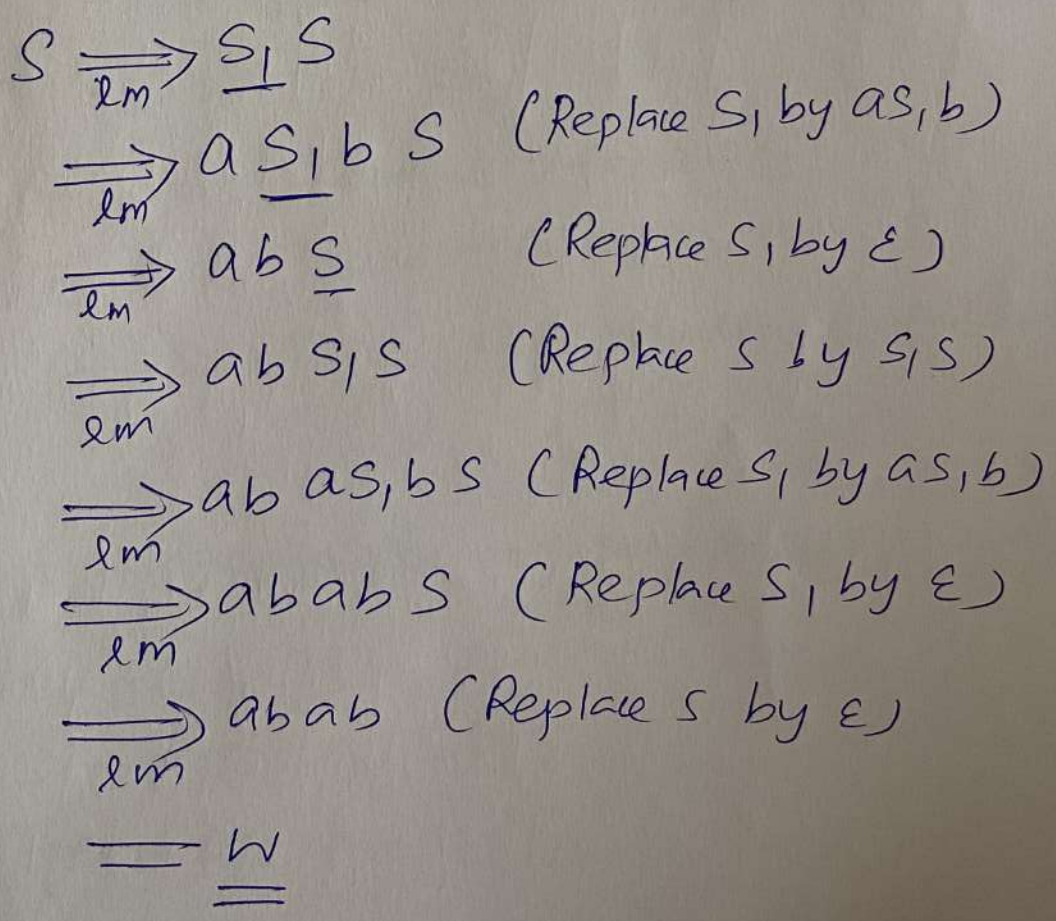 S ⟹ S₁ S
lm
⟹ a S₁ b S (Replace S₁ by aS₁b)
lm
⟹ a b S (Replace S₁ by ε)
lm
⟹ ab S₁ S (Replace S by S₁S)
lm
⟹ ab aS₁b S (Replace S₁ by aS₁b)
lm
⟹ abab S (Replace S₁ by ε)
lm
⟹ abab (Replace S by ε)
lm
= W